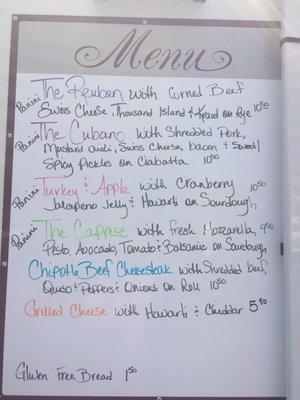 Menu
Panini The Reuben with Corned Beef
Swiss Cheese, Thousand Island & Kraut on Rye 10.50
Panini The Cubano with Shredded Pork,
Mustard aioli, Swiss Cheese, bacon & Sweet/
Spicy Pickles on Ciabatta 10.50
Panini Turkey & Apple with Cranberry 10.50
Jalapeno Jelly & Havarti on Sourdough
Panini The Caprese with fresh Mozzarella, 9.50
Pesto, Avocado, Tomato & Balsamic on Sourdough
Chipotle Beef Cheesesteak with Shredded beef,
Queso & Peppers & Onions on Roll 10.50
Grilled Cheese with Havarti & Cheddar 5.50
Gluten Free Bread 1.50